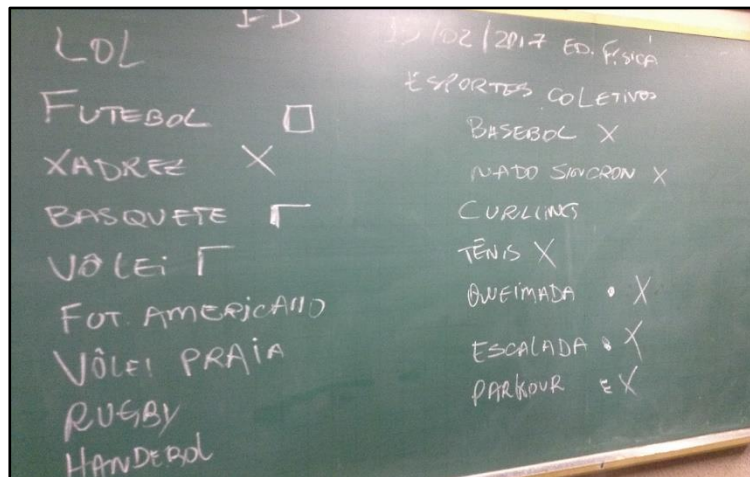 LOL
FUTEBOL
XADREZ X
BASQUETE
VÔLEI
FUT. AMERICANO
VÔLEI PRAIA
RUGBY
HANDEBOL
/02/2017 ED. FÍSICA
ESPORTES COLETIVOS
BASEBOL X
NADO SINCRON X
CURLING
TÊNIS X
QUEIMADA • X
ESCALADA • X
PARKOUR X